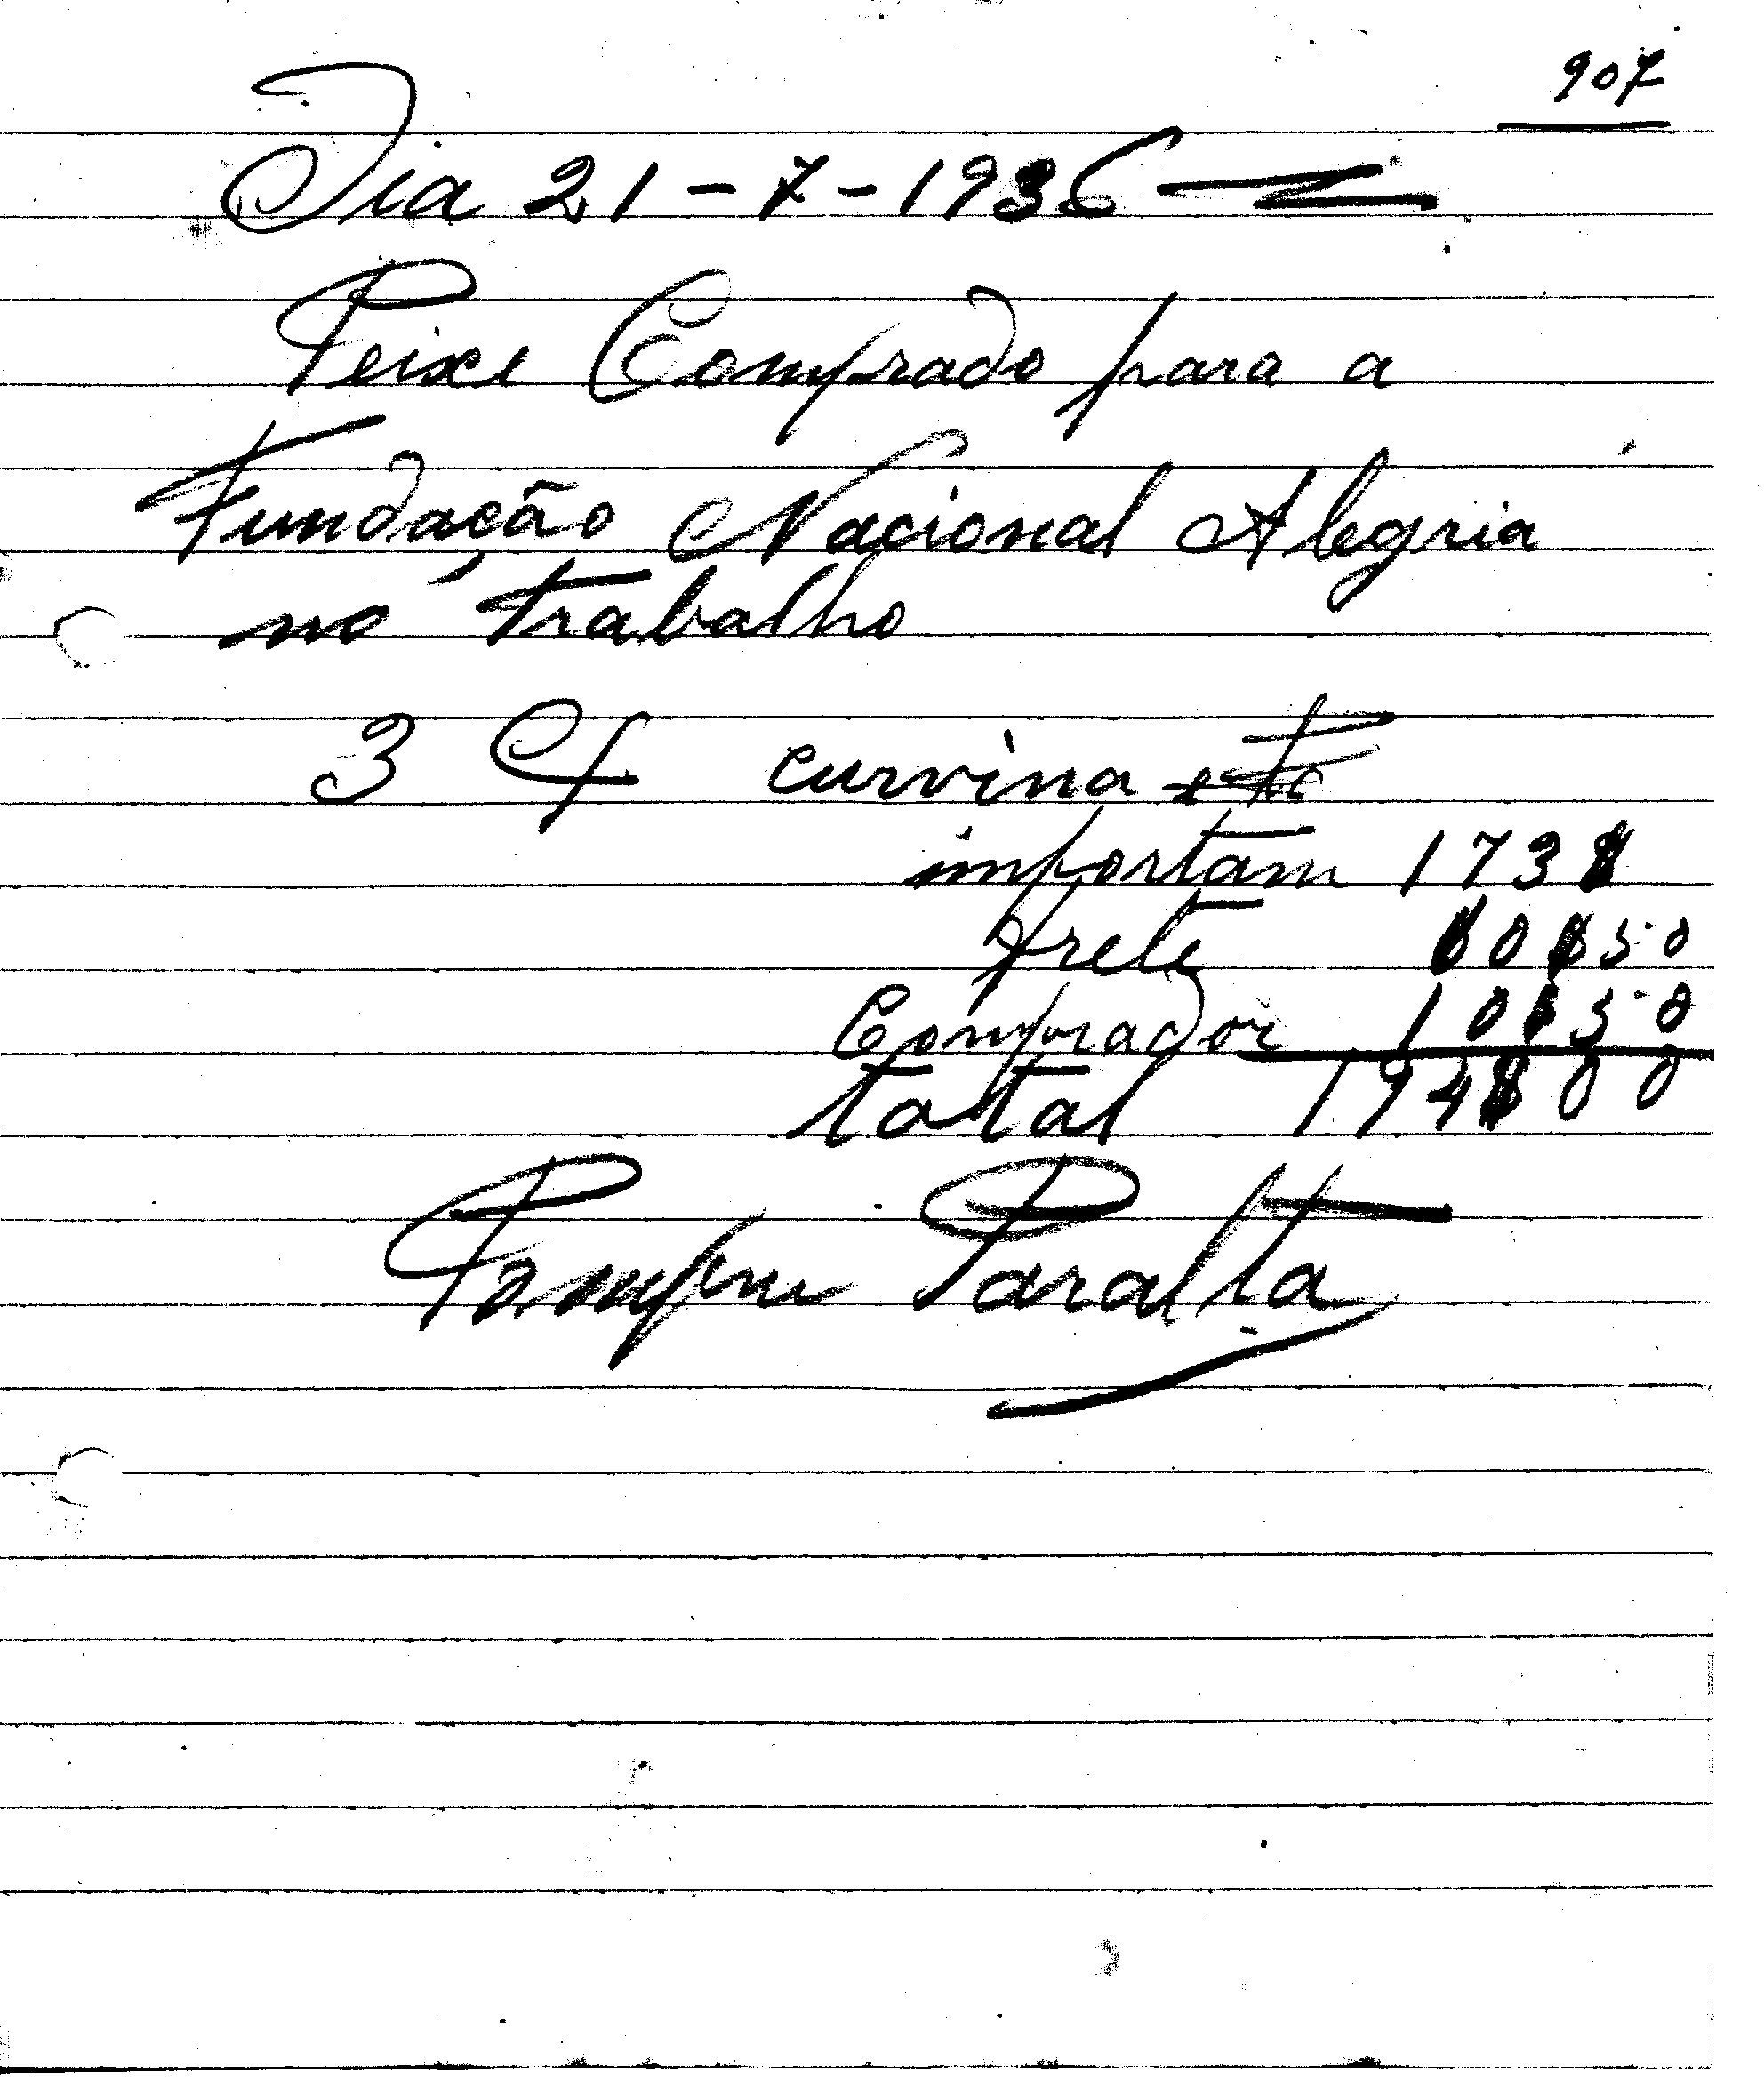 907
Dia 21-7-1936
Peixe Comprado para a
Fundação Nacional Alegria
no trabalho
3 Cx curvina etc
importam 173$
frete 10$50
Comprador 10$50
total 194$00
Paralta